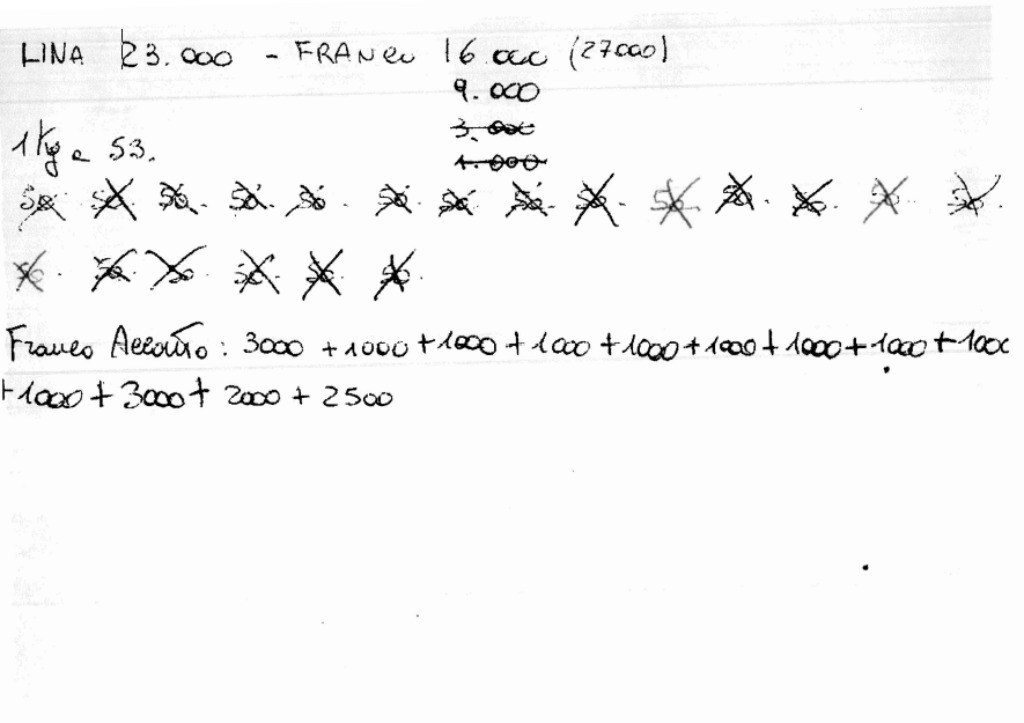 LINA 23.000 - FRANCO 16.000 (27000)
9.000
3.000
1 Kg a 53.
1.000
50. 50. 50. 50. 50. 50. 50. 50. 50. 50. 50. 50. 50. 50.
50. 50. 50. 50. 50. 50.
Franco Acconto: 3000 + 1000 + 1000 + 1000 + 1000 + 1000 + 1000 + 1000 + 1000
+ 1000 + 3000 + 2000 + 2500